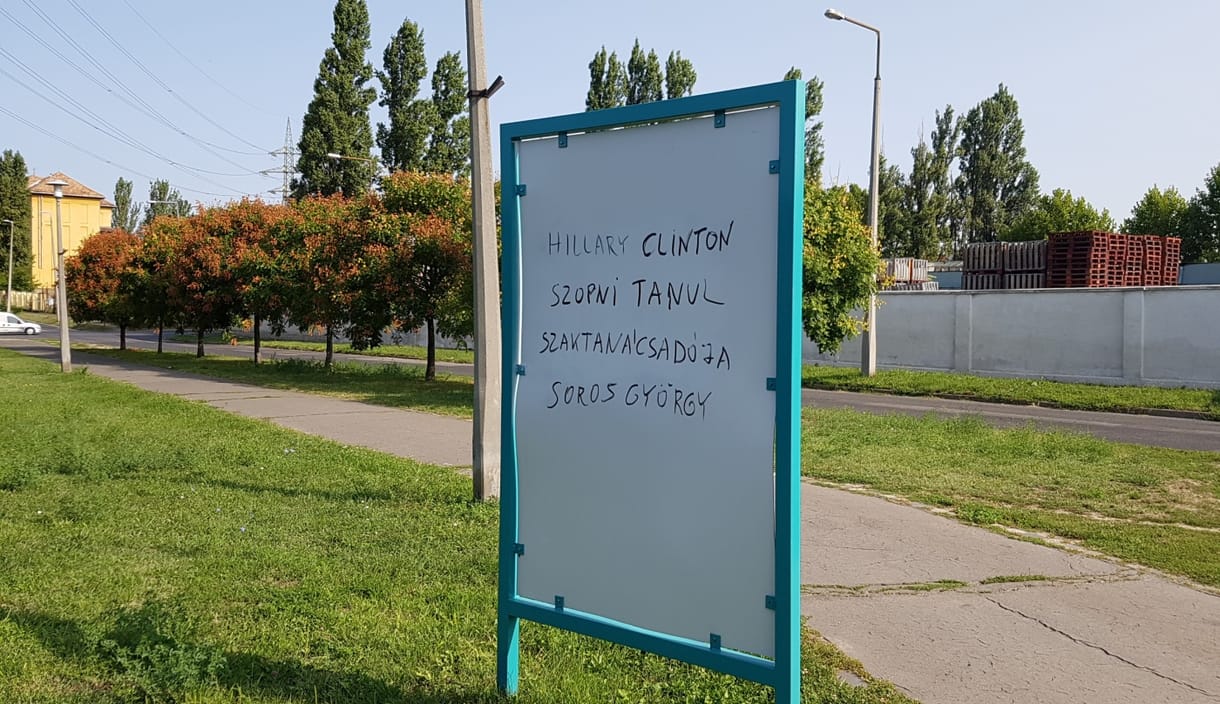 HILLARY CLINTON
SZOPNI TANUL
SZAKTANÁCSADÓJA
SOROS GYÖRGY